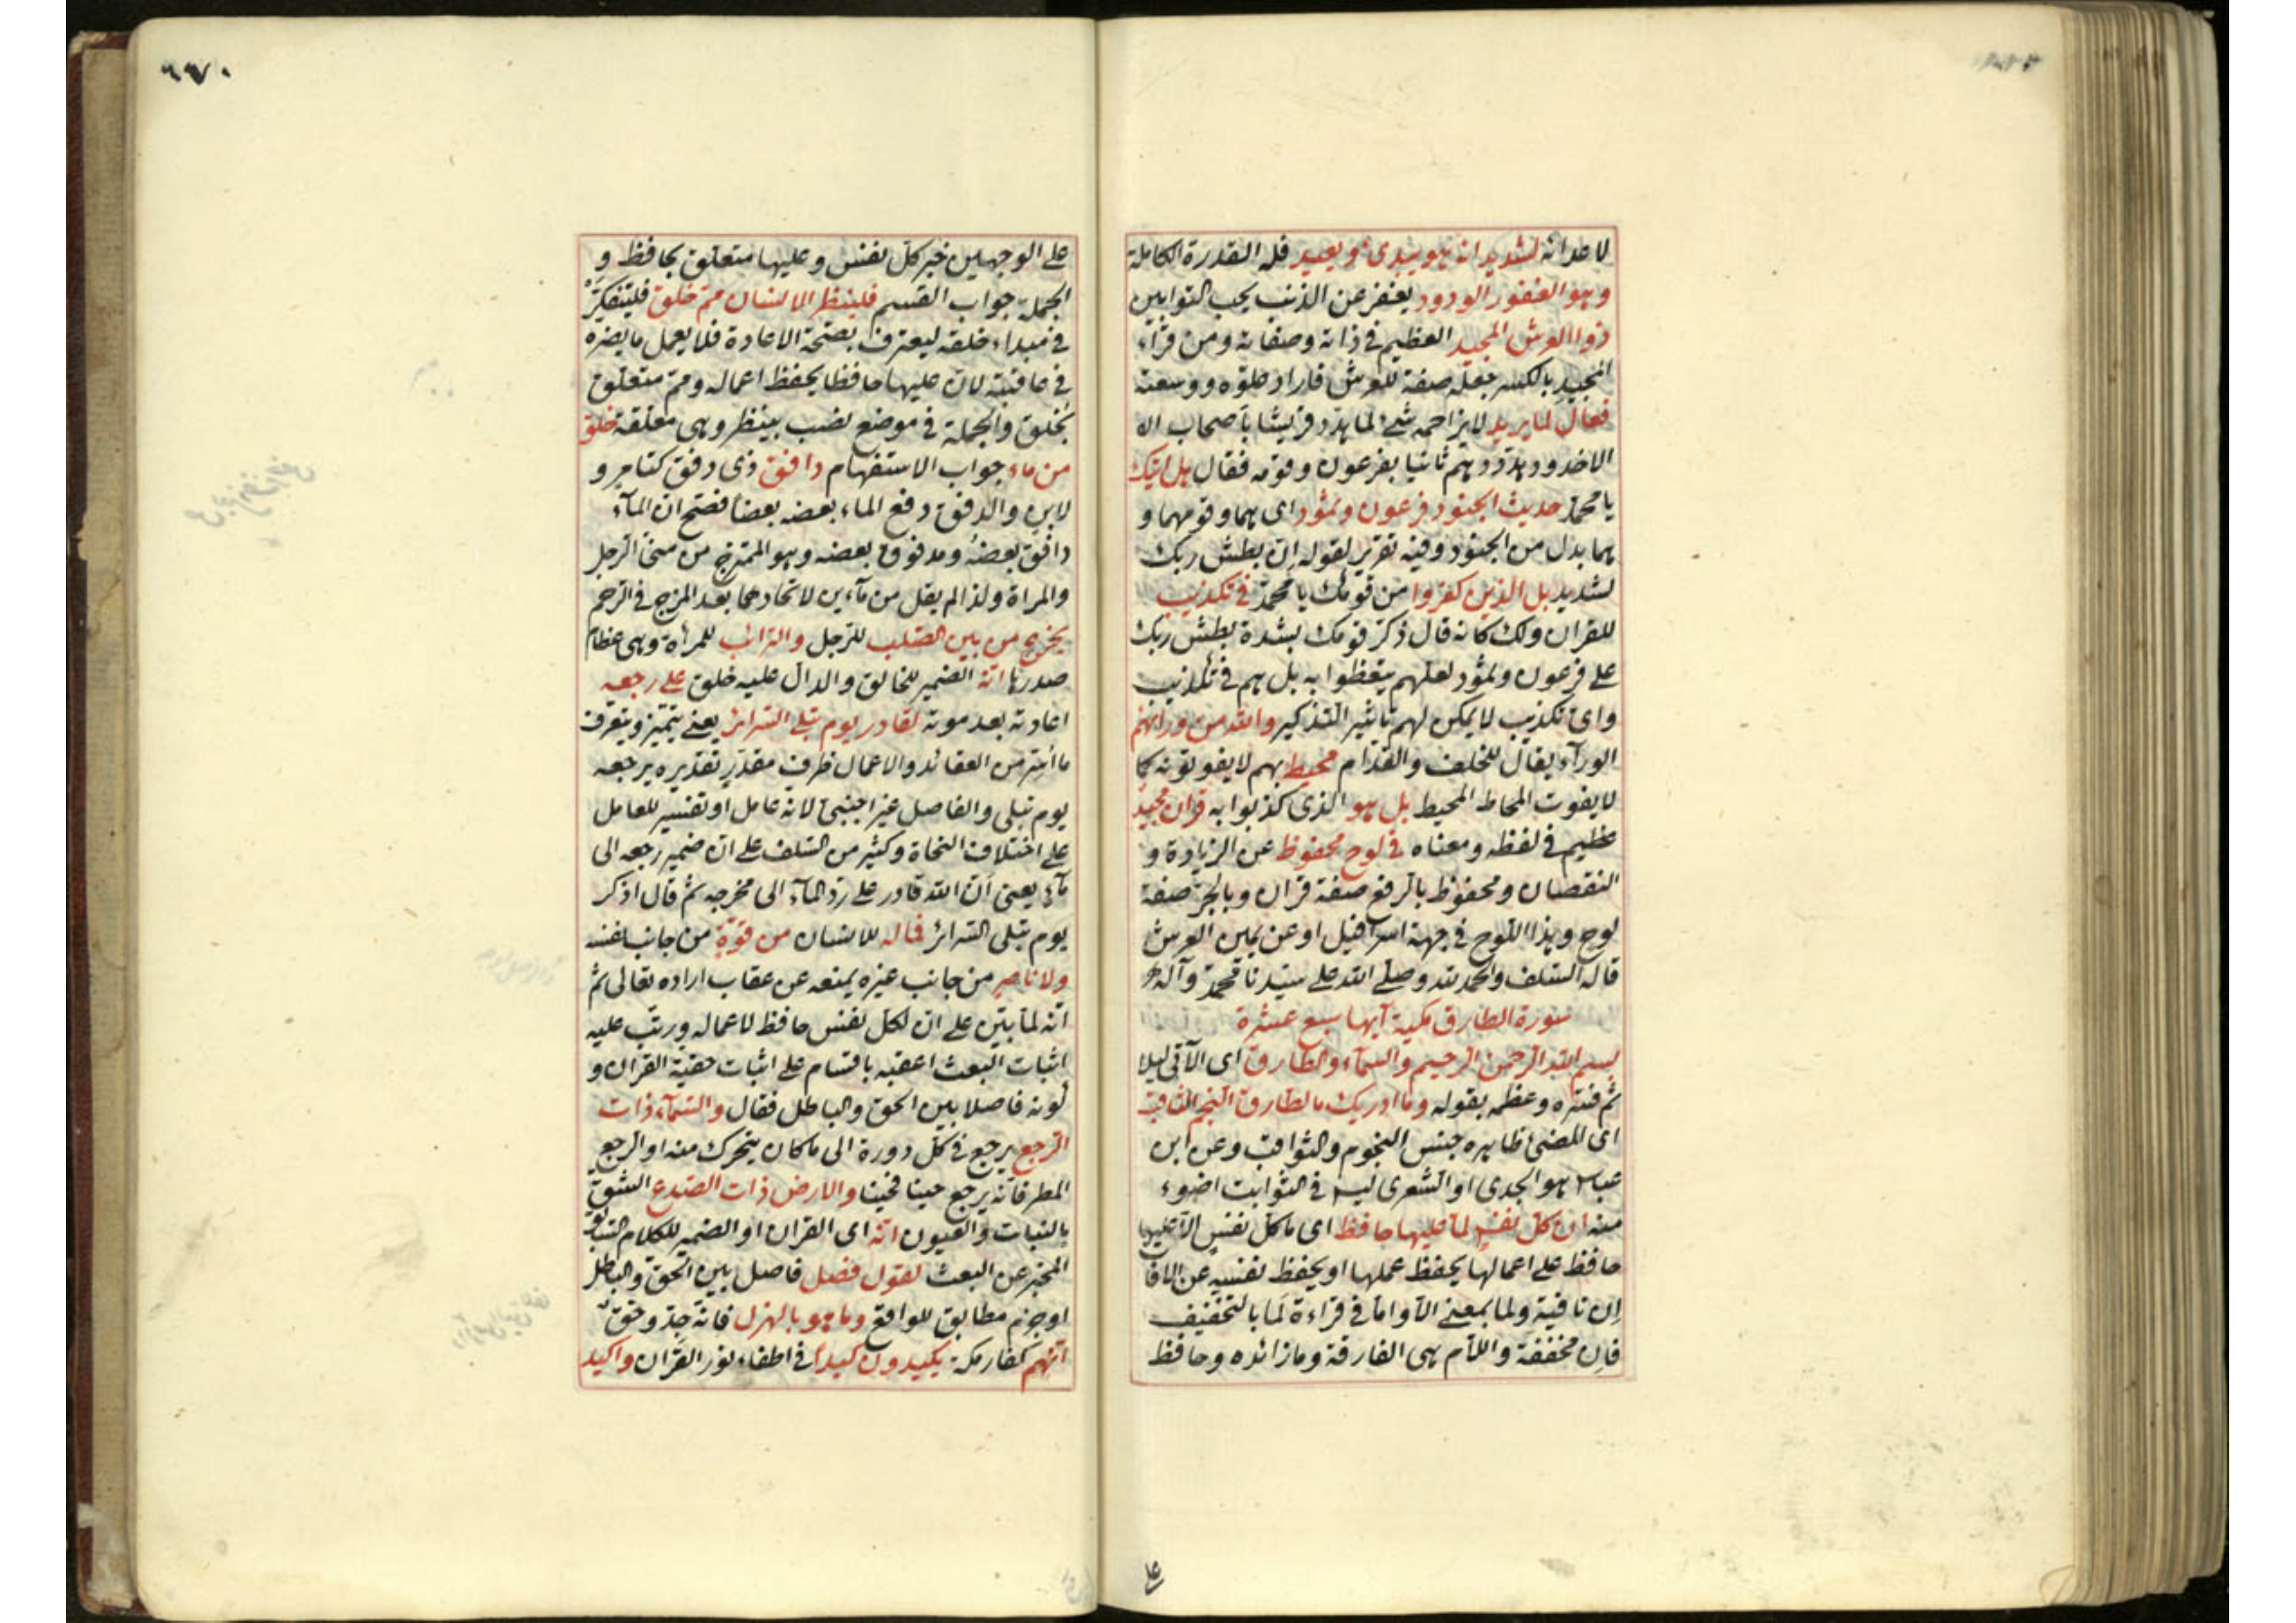 لاعدائه لشديد انه هو يبدئ ويعيد فله القدرة الكاملة
وهو الغفور الودود يغفر عن الذنب يحب التوابين
ذو العرش المجيد العظيم في ذاته وصفاته ومن قرأ
المجيد بالكسر جعله صفة للعرش فاراد علوه ووسعته
فعال لما يريد لا يزاحمه شئ لما هدد قريشا باصحاب الا
الاخدود هددهم ثانيا بفرعون وقومه فقال هل اتيك
يا محمد حديث الجنود فرعون وثمود اى هما وقومهما و
هما بدل من الجنود وفيه تقرير لقوله ان بطش ربك
لشديد بل الذين كفروا من قومك يا محمد في تكذيب
للقران ولك كانه قال ذكر قومك بشدة بطش ربك
على فرعون وثمود لعلهم يتعظوا به بل هم في تكذيب
واى تكذيب لا يمكن لهم تاثير التذكير والله من ورائهم
الورآء يقال للخلف والقدام محيط بهم لا يفوتونه كما
لا يفوت المحاط المحيط بل هو الذى كذبوا به قران مجيد
عظيم في لفظه ومعناه في لوح محفوظ عن الزيادة و
النقصان ومحفوظ بالرفع صفة قران وبالجر صفة
لوح وهذا اللوح في جبهة اسرافيل او عن يمين العرش
قاله السلف والحمد لله وصلى الله على سيدنا محمد وآله
سورة الطارق مكية آيها سبع عشرة
بسم الله الرحمن الرحيم والسمآء والطارق اى الآتى ليلا
ثم فسره وعظمه بقوله وما ادريك ما الطارق النجم الثاقب
اى المضئ ظاهره جنس النجوم والثواقب وعن ابن
عباس هو الجدى او الشعرى ليس في الثوابت اضوء
منه ان كل نفس لما عليها حافظ اى ما كل نفس الا عليها
حافظ على اعمالها يحفظ عملها او يحفظ نفسه عن الافات
ان نافية ولما بمعنى الا واما في قراءة لما بالتخفيف
فان مخففة واللام هى الفارقة وما زائده وحافظ
على
٦٦٧٠
على الوجهين خبر كل نفس وعليها متعلق بحافظ و
الجملة جواب القسم فلينظر الانسان مم خلق فليتفكر
في مبداء خلقه ليعترف بصحة الاعادة فلا يعمل ما يضره
في عاقبته لان عليها حافظا يحفظ اعماله ومم متعلق
بخلق والجملة في موضع نصب بينظر وهى معلقة خلق
من ماء جواب الاستفهام دافق ذى دفق كتامر و
لابن والدفق دفع الماء بعضه بعضا فصح ان المآء
دافق بعضه ومدفوق بعضه وهو الممتزج من منى الرجل
والمراة ولذا لم يقل من مآءين لاتحادهما بعد المزج في الرحم
يخرج من بين الصلب للرجل والترائب للمرأة وهى عظام
صدرها انه الضمير للخالق والدال عليه خلق على رجعه
اعادته بعد موته لقادر يوم تبلى السرائر يعنى يتميز ويتعرف
ما اسر من العقائد والاعمال ظرف مقدر تقديره يرجعه
يوم تبلى والفاصل غير اجنبى لانه عامل او تفسير للعامل
على اختلاف النحاة وكثير من السلف على ان ضمير رجعه الى
مآء يعنى ان الله قادر على رد المآء الى مخرجه ثم قال اذكر
يوم تبلى السرائر فماله للانسان من قوة من جانب نفسه
ولا ناصر من جانب غيره يمنعه عن عقاب اراده تعالى ثم
انه لما بين على ان لكل نفس حافظ لاعماله ورتب عليه
اثبات البعث اعقبه باقسام على اثبات حقية القران و
كونه فاصلا بين الحق والباطل فقال والسمآء ذات
الرجع يرجع في كل دورة الى ما كان يتحرك منه او الرجع
المطر فانه يرجع حينا فحينا والارض ذات الصدع الشق
بالنبات والعيون انه اى القران او الضمير للكلام السابق
المخبر عن البعث لقول فصل فاصل بين الحق والباطل
او جزم مطابق للواقع وما هو بالهزل فانه جد وحق
انهم كفار مكة يكيدون كيدا في اطفاء نور القران واكيد